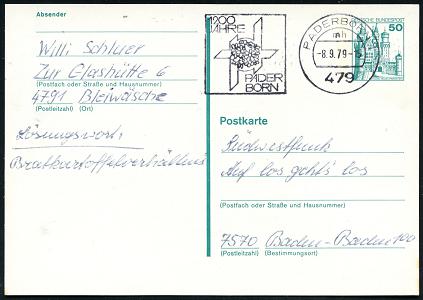 Absender
Willi Schluer
Zur Glashütte 6
(Postfach oder Straße und Hausnummer)
4791 Bleiwäsche
(Postleitzahl) (Ort)
Lösungswort:
Bratkartoffelverhältnis
1200
JAHRE
PADER
BORN
PADERBORN
mh
-8.9.79-
479
DEUTSCHE BUNDESPOST
50
Postkarte
Südwestfunk
Auf los geht's los
(Postfach oder Straße und Hausnummer)
7570 Baden-Baden 100
(Postleitzahl) (Bestimmungsort)